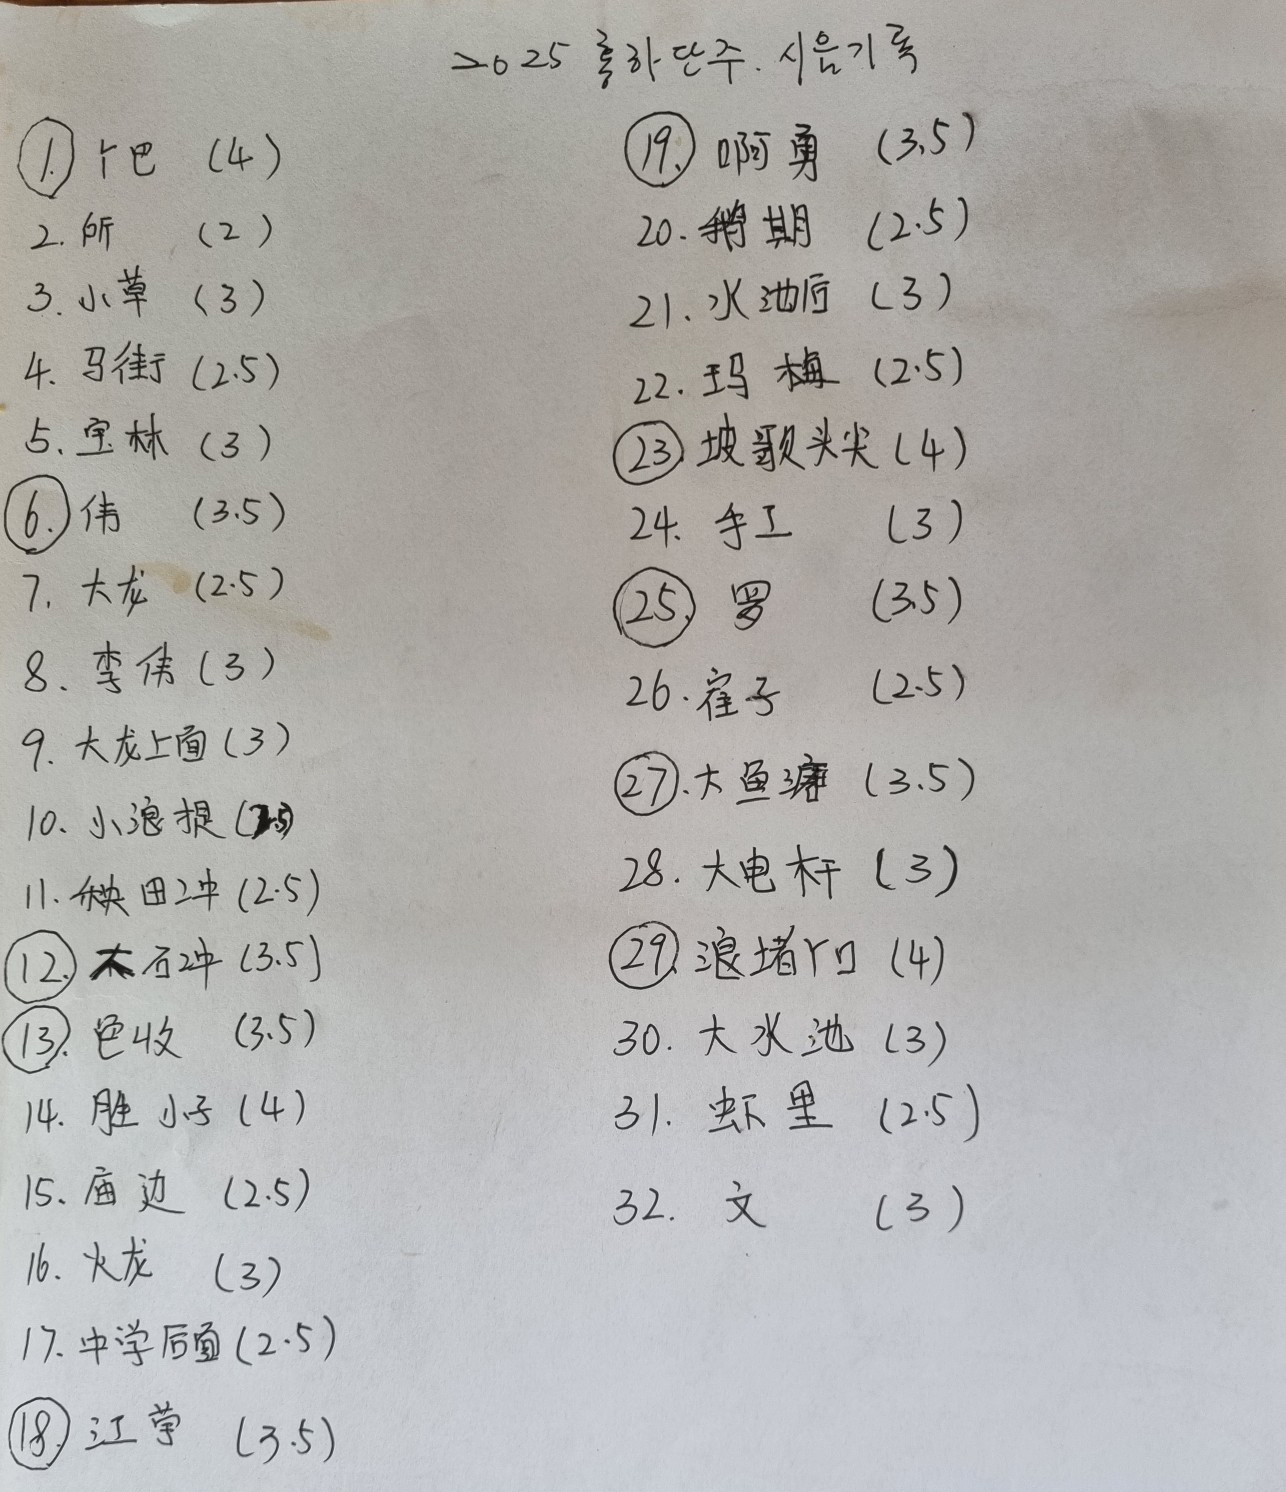 2025 홍하단주. 시음기록
1. 个巴 (4)
2. 所 (2)
3. 小草 (3)
4. 马街 (2.5)
5. 宝林 (3)
6. 伟 (3.5)
7. 大龙 (2.5)
8. 李伟 (3)
9. 大龙上面 (3)
10. 小浪提
11. 秧田冲 (2.5)
12. 大石冲 (3.5)
13. 色收 (3.5)
14. 胜小子 (4)
15. 庙边 (2.5)
16. 火龙 (3)
17. 中学后面 (2.5)
18. 江 (3.5)
19. 啊勇 (3.5)
20. 期 (2.5)
21. 水池后 (3)
22. 玛梅 (2.5)
23. 坡歌头尖 (4)
24. 手工 (3)
25. 罗 (3.5)
26. 崔子 (2.5)
27. 大鱼塘 (3.5)
28. 大电杆 (3)
29. 浪堵丫口 (4)
30. 大水池 (3)
31. 虾里 (2.5)
32. 文 (3)